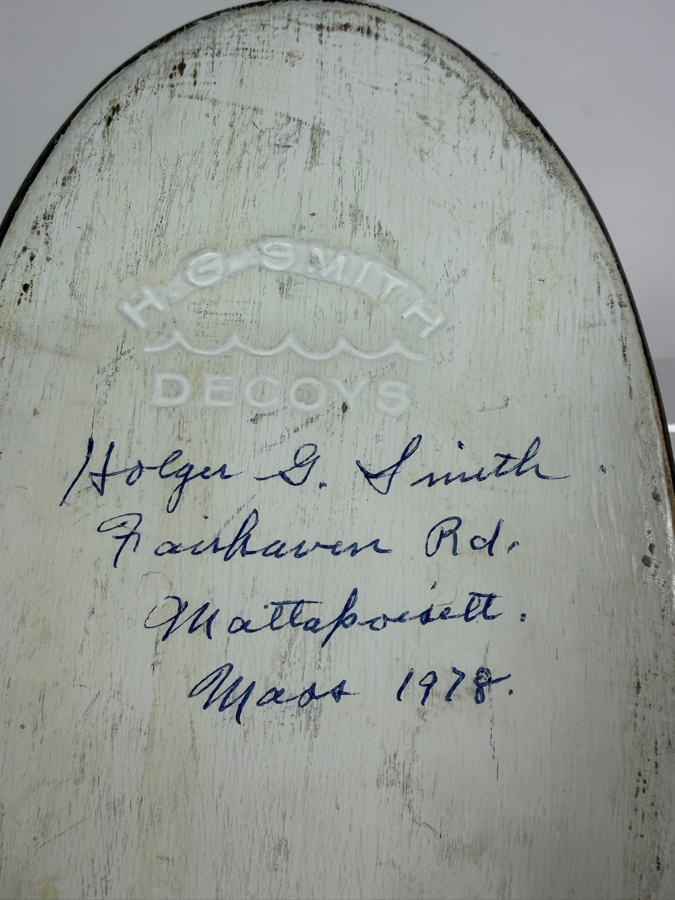 H. G. SMITH
DECOYS
Holger G. Smith.
Fairhaven Rd.
Mattapoisett.
Mass 1978.